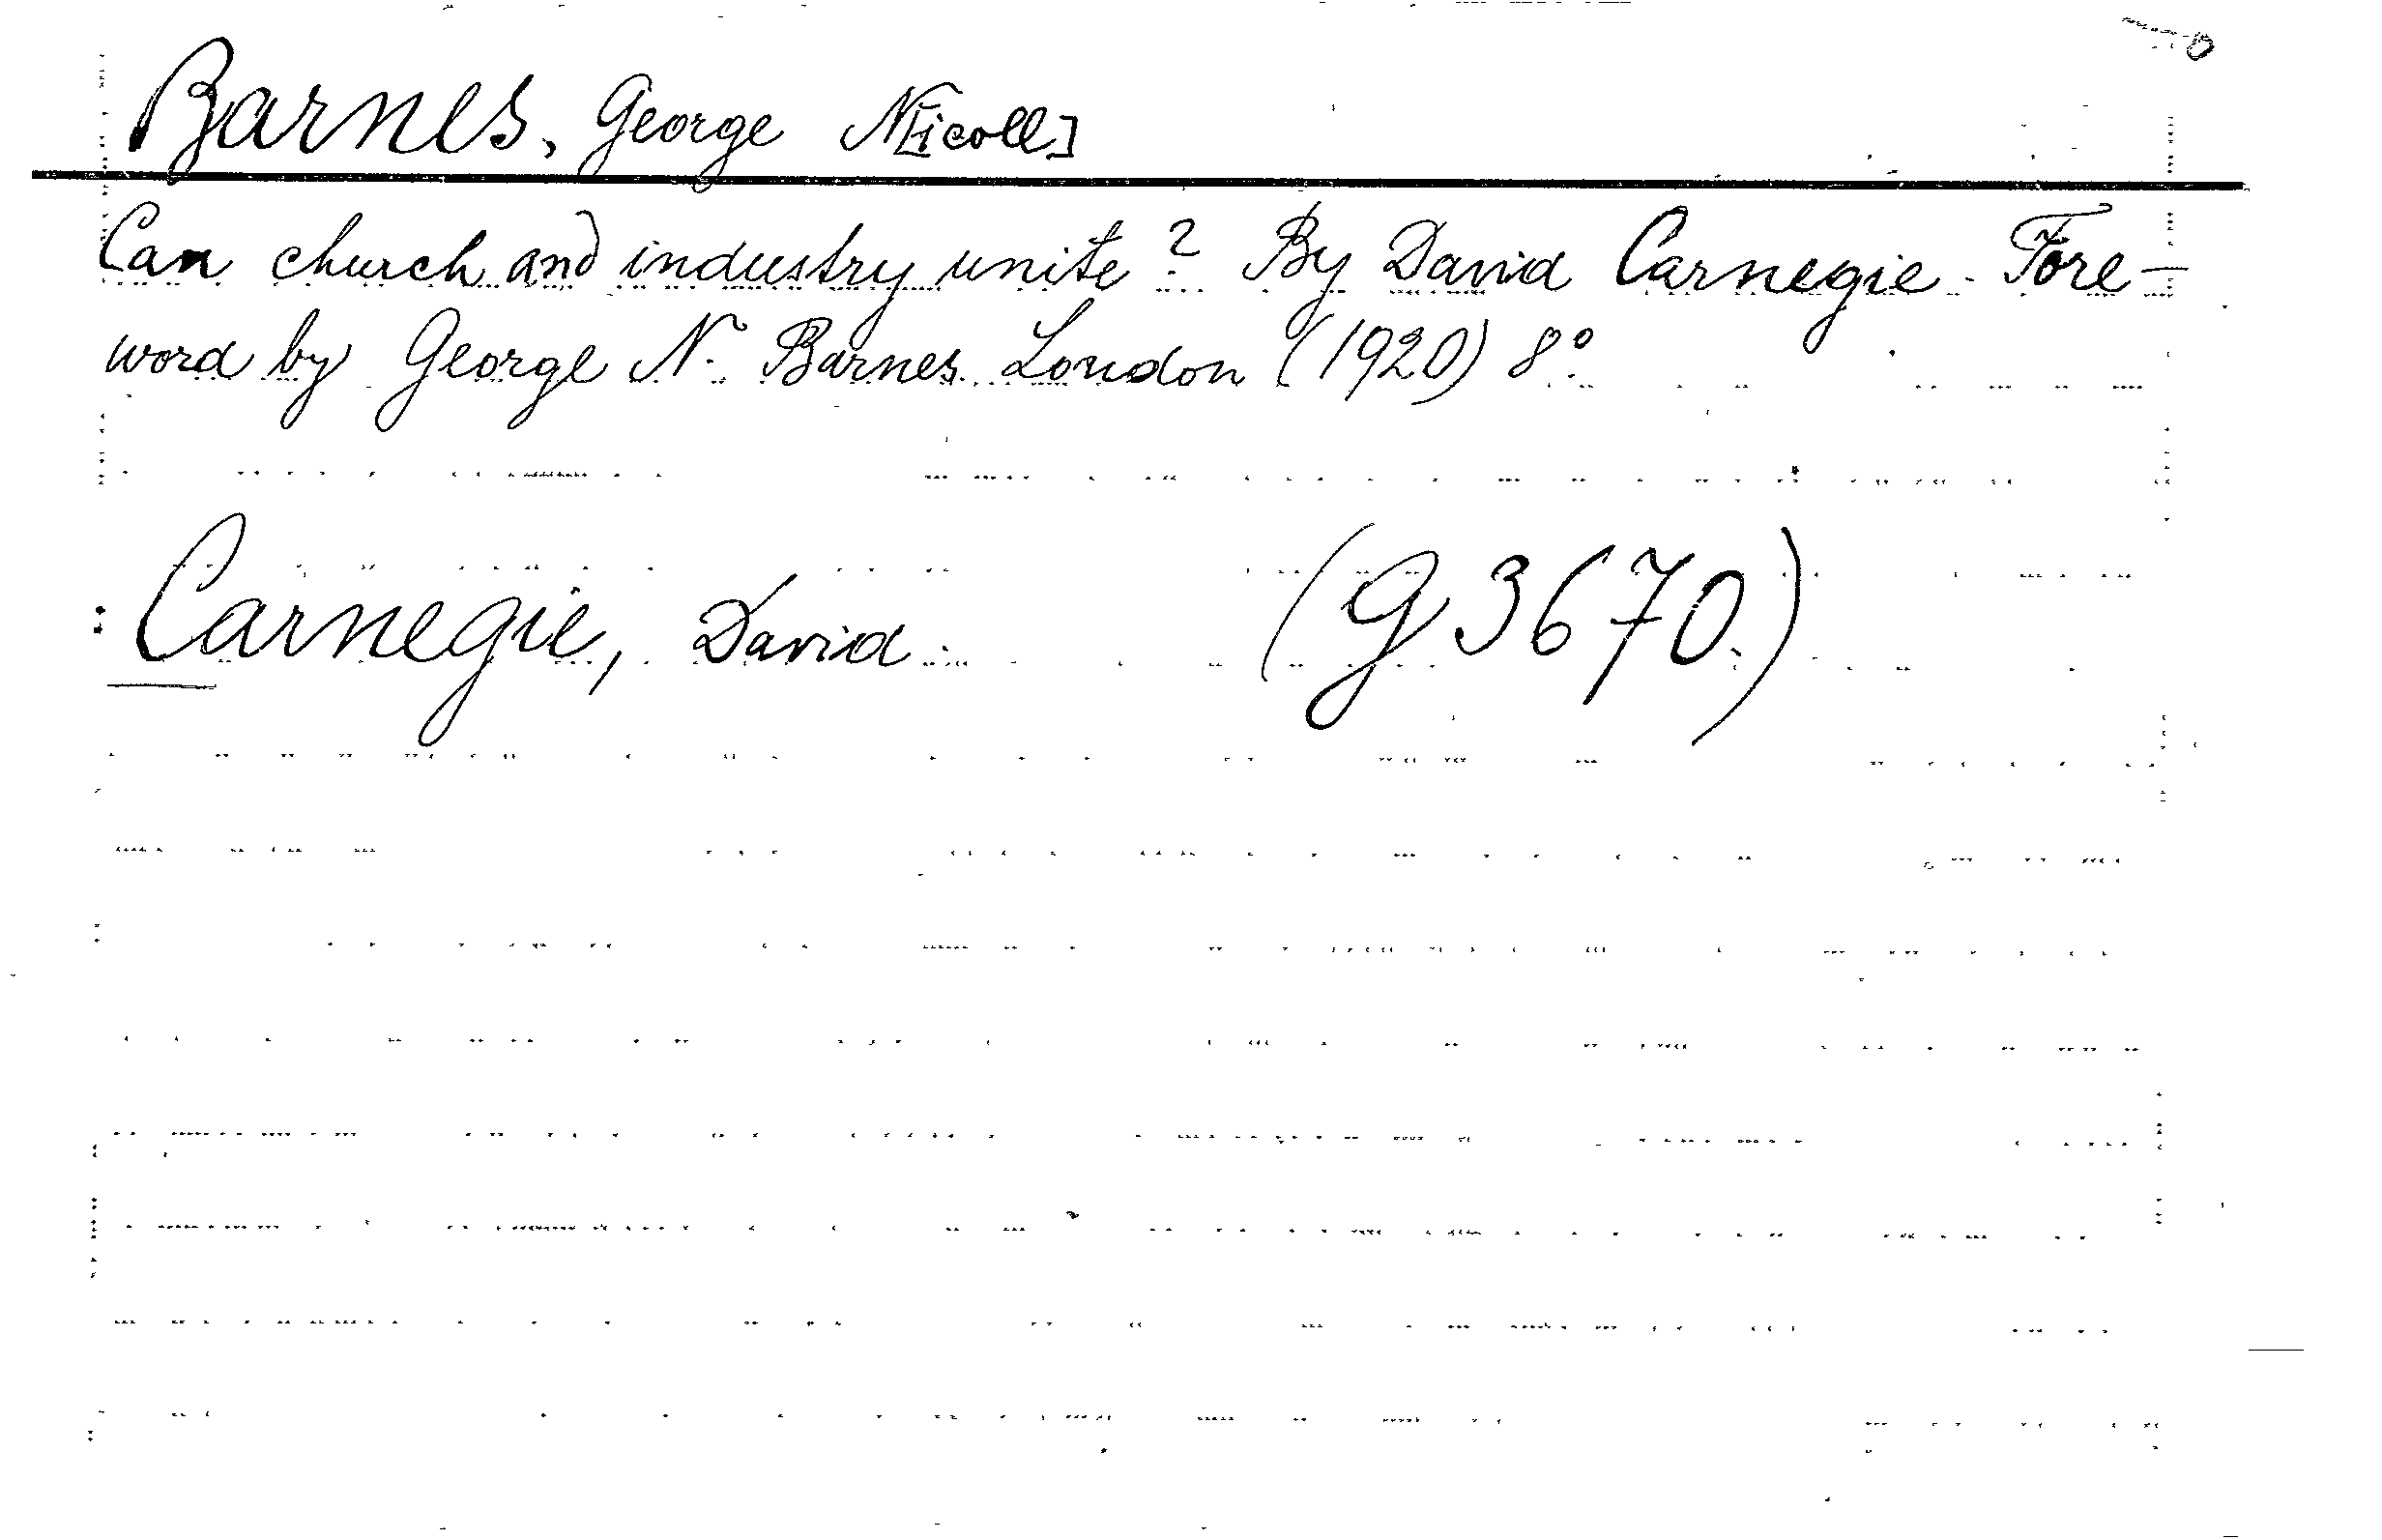 Barnes, George N[icoll]
Can church and industry unite? By David Carnegie. Fore-
word by George N. Barnes. London (1920) 8°.
Carnegie, David. (G 3670.)